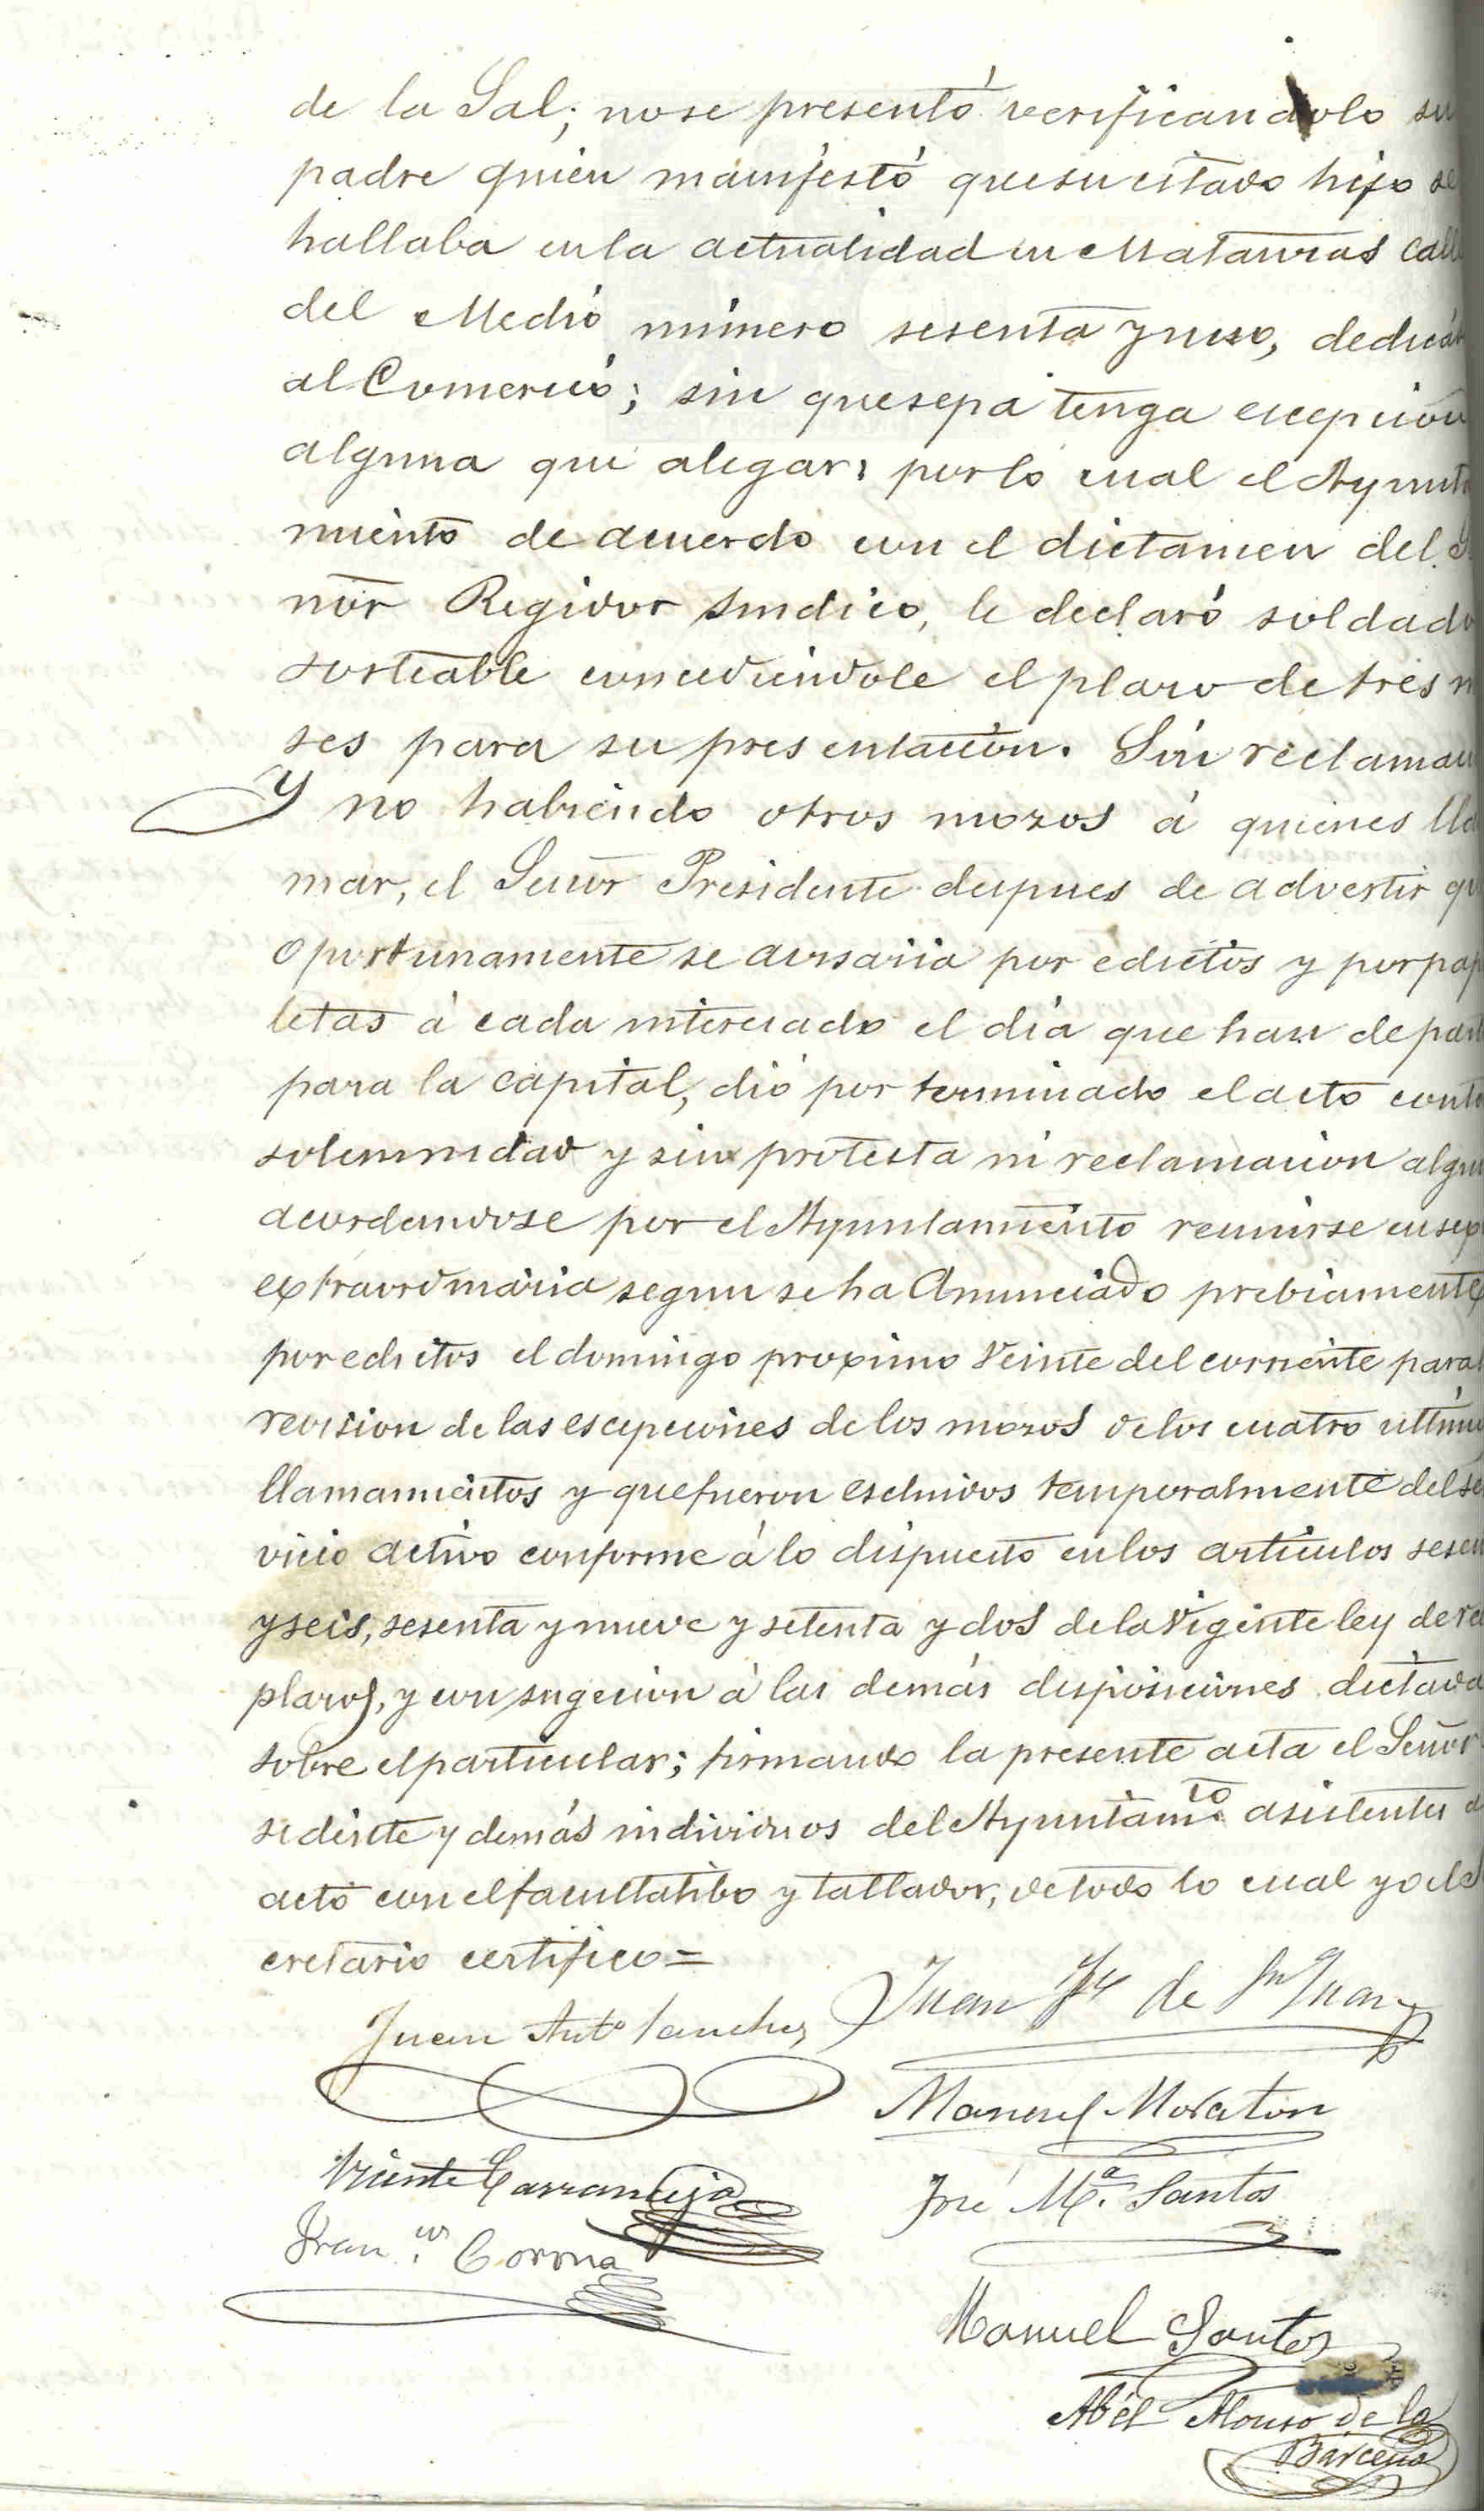 de la Sal; no se presentó verificandolo su
padre quien manifestó que su citado hijo se
hallaba en la actualidad en Matanzas Calle
del Medio número sesenta y uno, dedicán
al Comercio; sin que sepa tenga escepción
alguna que alegar; por lo cual el Ayunta
miento de acuerdo con el dictamen del
ñor Regidor sindico, le declaró soldado
sorteable concediendole el plazo de tres m
ses para su presentación. Sin reclamac
Y no habiendo otros mozos á quienes lla
mar, el Señor Presidente despues de advertir qu
oportunamente se avisaria por edictos y por pap
letas á cada interesado el dia que han de part
para la capital, dió por terminado el acto con to
solemnidad y sin protesta ni reclamacion algu
acordandose por el Ayuntamiento reunirse en ses
extraordinaria segun se ha Anunciado prebiamente
por edictos el domingo proximo veinte del corriente para l
revision de las escepciones de los mozos de los cuatro ultimo
llamamientos y que fueron escluidos temporalmente del se
vicio activo conforme á lo dispuesto en los articulos sesen
y seis, sesenta y nueve y setenta y dos de la vigente ley de re
plazos, y con sugecion á las demás disposiciones dictada
sobre el particular; firmando la presente acta el Señor
sidente y demás individuos del Ayuntamto asistentes a
acto con el facultatibo y tallador, de todo lo cual yo el S
cretario certifico=
Juan Anto Sanchez Juan de Sn Juan
Manuel Moraton
Vicente Carranceja
José Ma. Santos
Franco Corona
Manuel Santos
Abél Alonso de la
Bárcena